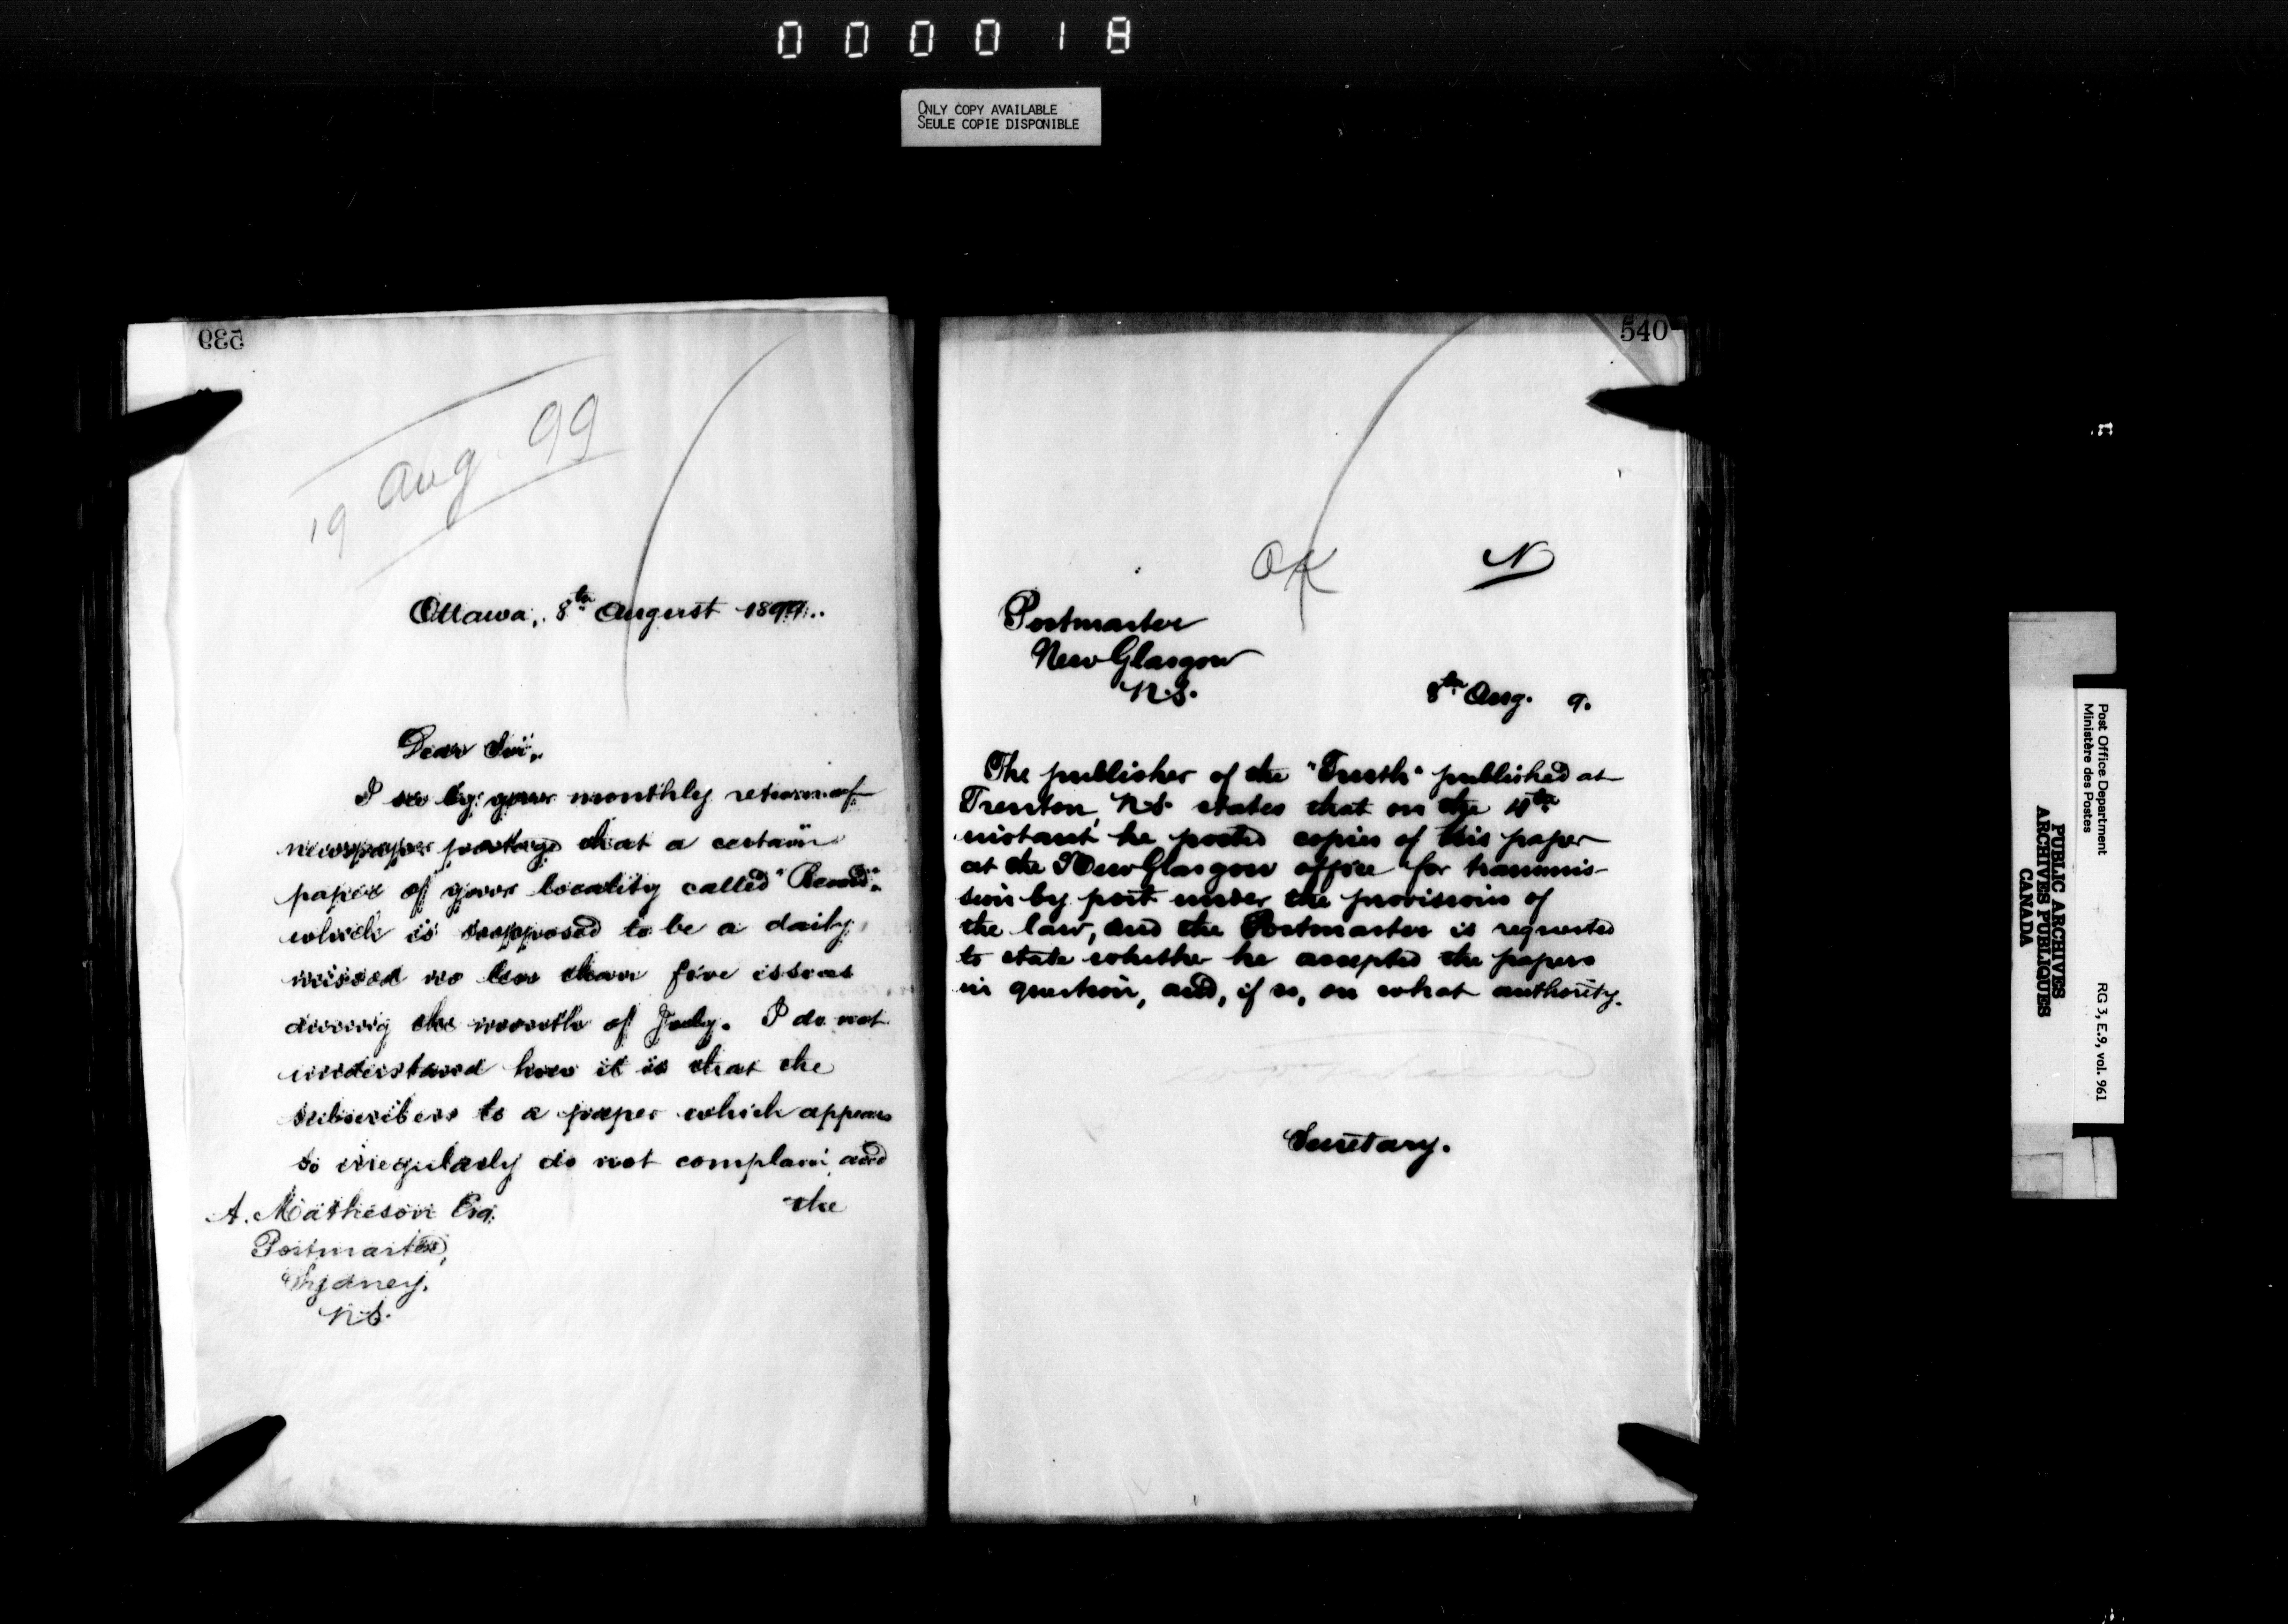 000018
ONLY COPY AVAILABLE
SEULE COPIE DISPONIBLE
539
19 Aug 99
Ottawa, 8th August 1899.
Dear Sir,
I see by your monthly return of
newspaper postage that a certain
paper of your locality called "Record",
which is supposed to be a daily,
missed no less than five issues
during the month of July. I do not
understand how it is that the
subscribers to a paper which appears
so irregularly do not complain, and
the
A. Matheson Esq.
Postmaster,
Sydney.
N.S.
540
OK
N
Postmaster
New Glasgow
N.S.
8th Aug. 9.
The publisher of the "Truth" published at
Trenton, N.S. states that on the
instant he posted copies of this paper
at the New Glasgow office for transmis-
sion by post under the provisions of
the law, and the Postmaster is requested
to state whether he accepted the papers
in question, and, if so, on what authority.
Secretary.
Post Office Department
Ministère des Postes
RG 3, E.9, vol. 961
PUBLIC ARCHIVES
ARCHIVES PUBLIQUES
CANADA